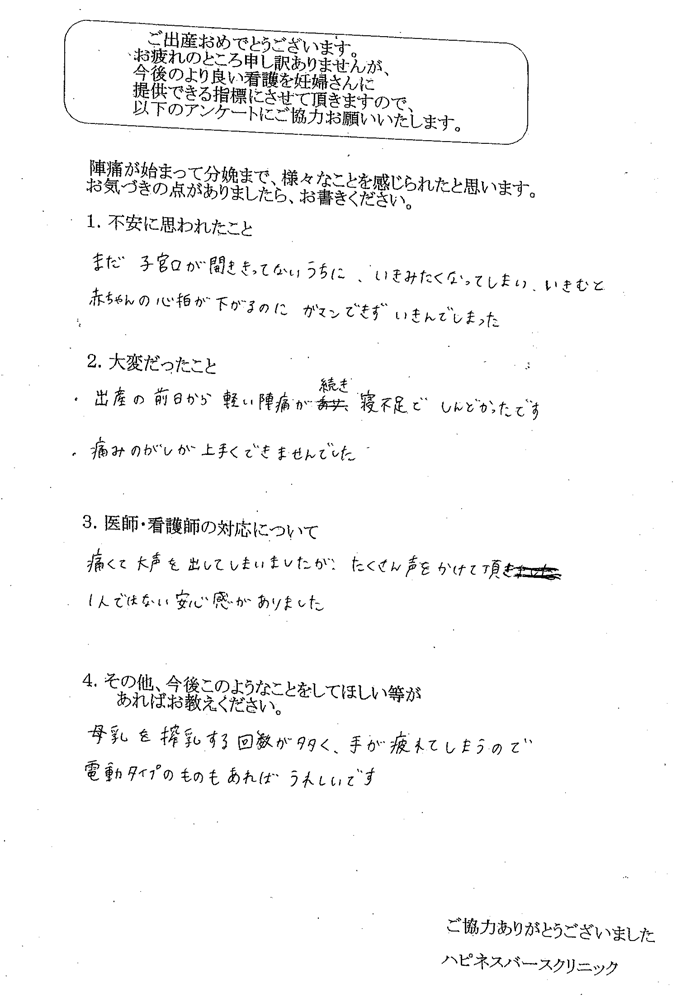 ご出産おめでとうございます。
お疲れのところ申し訳ありませんが、
今後のより良い看護を妊婦さんに
提供できる指標にさせて頂きますので、
以下のアンケートにご協力お願いいたします。
陣痛が始まって分娩まで、様々なことを感じられたと思います。
お気づきの点がありましたら、お書きください。
1. 不安に思われたこと
まだ 子宮口が開ききってないうちに、いきみたくなってしまい、いきむと
赤ちゃんの心拍が下がるのに ガマンできず いきんでしまった
2. 大変だったこと
・出産の前日から 軽い陣痛が続き 寝不足で しんどかったです
・痛みのがしが上手くできませんでした
3. 医師・看護師の対応について
痛くて大声を出してしまいましたが、たくさん声をかけて頂き
1人ではない安心感がありました
4. その他、今後このようなことをしてほしい等が
あればお教えください。
母乳を搾乳する回数が多く、手が疲れてしまうので
電動タイプのものもあれば うれしいです
ご協力ありがとうございました
ハピネスバースクリニック